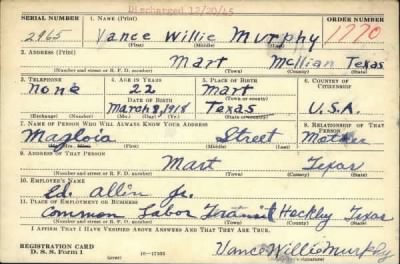 Discharged 12/20/45
SERIAL NUMBER 1. NAME (Print) ORDER NUMBER
2965 Vance Willie Murphy 1770
(First) (Middle) (Last)
2. ADDRESS (Print)
Mart Mcllian Texas
(Number and street or R. F. D. number) (Town) (County) (State)
3. TELEPHONE 4. AGE IN YEARS 5. PLACE OF BIRTH 6. COUNTRY OF CITIZENSHIP
None 22 Mart
DATE OF BIRTH (Town or county)
March 8, 1918 Texas U.S.A.
(Exchange) (Number) (Mo.) (Day) (Yr.) (State or country)
7. NAME OF PERSON WHO WILL ALWAYS KNOW YOUR ADDRESS 8. RELATIONSHIP OF THAT PERSON
Magloia Street Mother
(Mr., Mrs., Miss) (First) (Middle) (Last)
9. ADDRESS OF THAT PERSON
Mart Texas
(Number and street or R. F. D. number) (Town) (County) (State)
10. EMPLOYER'S NAME
Ed. Allin Jr.
11. PLACE OF EMPLOYMENT OR BUSINESS
Common Labor Heckly Texas
(Number and street or R. F. D. number) (Town) (County) (State)
I AFFIRM THAT I HAVE VERIFIED ABOVE ANSWERS AND THAT THEY ARE TRUE.
REGISTRATION CARD
D. S. S. Form 1 (over) Vance Willie Murphy